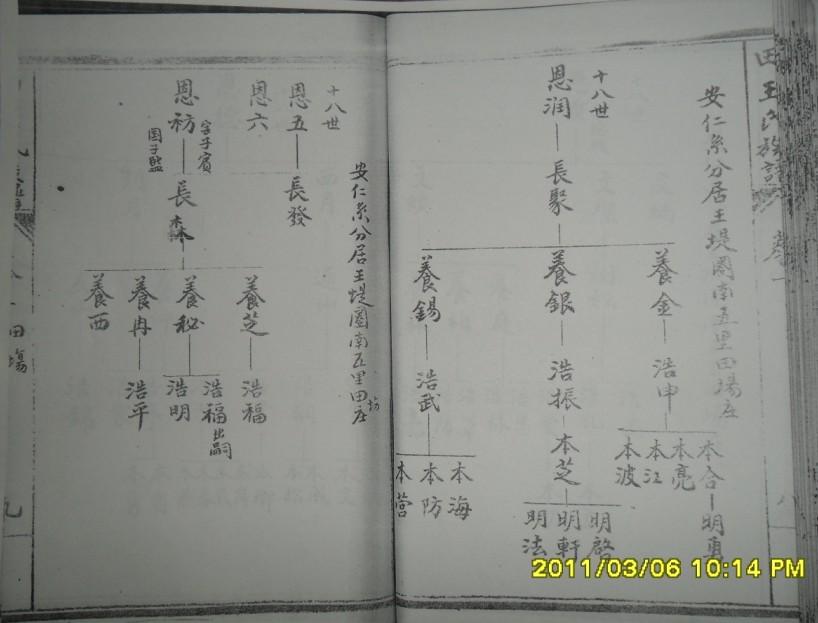 田王氏族譜
卷一
八
安仁系分居王堤圈南五里田場庄
十八世
恩润
長聚
養金
養銀
養錫
浩申
浩振
浩武
本合
本亮
本江
本波
本芝
本海
本防
本营
明勇
明啓
明軒
明法
安仁系分居王堤圈南五里田場庄
十八世
恩五
恩六
恩礽
字子賓
国子監
長發
長森
養芝
養秘
養冉
養西
浩福
浩福出嗣
浩明
浩平
田場
九
2011/03/06 10:14 PM